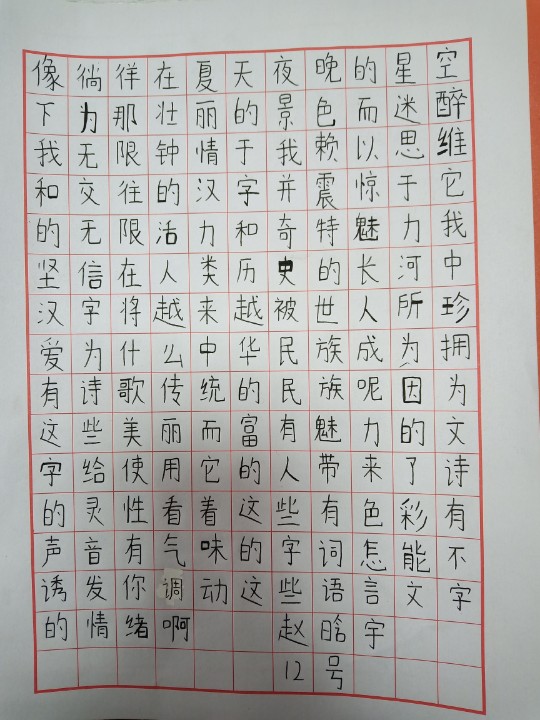 像徜徉在夏天夜晚的星空
下为那壮丽的景色而迷醉
我无限钟情于我赖以思维
和交往的汉字并震惊于它
的无限活力和奇特魅力我
坚信在人类历史的长河中
汉字将越来越被世人所珍
爱为什么中华民族成为拥
有诗歌传统的民族呢因为
这些美丽而富有魅力的文
字给使用它的人带来了诗
的灵性看着这些有色彩有
声音有气味的字词怎能不
诱发你调动这些语言文字
的情绪啊 赵晗宇
12号